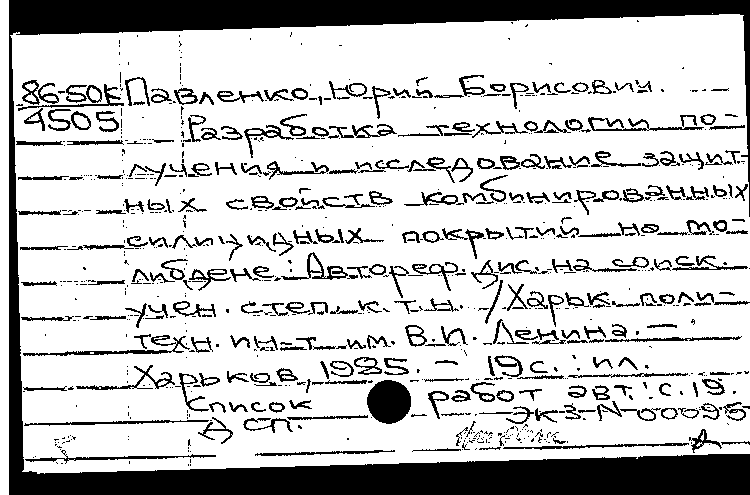 86-50К Павленко, Юрий Борисович.
4505 Разработка технологии по-
лучения и исследование защит-
ных свойств комбинированных
силицидных покрытий на мо-
либдене: Автореф. дис. на соиск.
учен. степ. к.т.н. / Харьк. поли-
техн. ин-т им. В.И. Ленина. —
Харьков, 1985. — 19 с. : ил.
Список работ авт.: с. 19.
А сп. Экз. N 00095